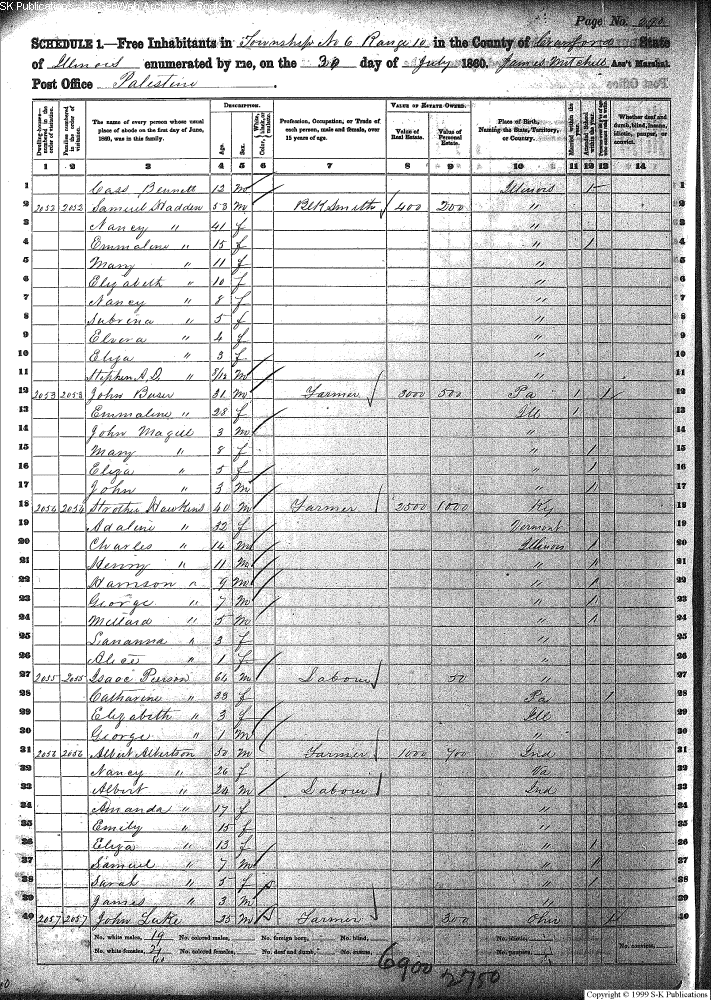 SK Publications - USGenWeb Archives
Page No.
SCHEDULE 1.—Free Inhabitants in Township No 6 Range 10 in the County of Crawford State
of Illinois enumerated by me, on the 30 day of July 1860. James Mitchell Ass't Marshal.
Post Office Palestine.
Dwelling-houses—numbered in the order of visitation.
Families numbered in the order of visitation.
The name of every person whose usual place of abode on the first day of June, 1860, was in this family.
DESCRIPTION.
Age.
Sex.
Color, White, black, or mulatto.
Profession, Occupation, or Trade of each person, male and female, over 15 years of age.
VALUE OF ESTATE OWNED.
Value of Real Estate.
Value of Personal Estate.
Place of Birth, Naming the State, Territory, or Country.
Married within the year.
Attended School within the year.
Whether deaf and dumb, blind, insane, idiotic, pauper, or convict.
1 2 3 4 5 6 7 8 9 10 11 12 13 14
1 Cass Bennett 12 m Illinois 1 1
2 2052 2052 Samuel Hadden 53 m Blk Smith 400 200 " 2
3 Nancy " 41 f " 3
4 Emmaline " 15 f " 1 4
5 Mary " 11 f " 5
6 Elizabeth " 10 f " 6
7 Nancy " 8 f " 7
8 Sabrina " 5 f " 8
9 Elvera " 4 f " 9
10 Eliza " 3 f " 10
11 Stephen A.D. " 8/12 m " 11
12 2053 2053 John Buser 31 m Farmer 3000 500 Pa 1 1 12
13 Emmaline " 28 f Ill 1 13
14 John Magill 3 m " 14
15 Mary " 8 f " 1 15
16 Eliza " 5 f " 1 16
17 John " 3 m " 1 17
18 2054 2054 Strother Hawkins 40 m Farmer 2500 1000 Ky 18
19 Adaline " 32 f Vermont 19
20 Charles " 14 m Illinois 1 20
21 Henny " 11 m " 1 21
22 Harrison " 9 m " 1 22
23 George " 7 m " 1 23
24 Millard " 5 m " 1 24
25 Lananna " 3 f " 25
26 Alice " 1 f " 26
27 2055 2055 Isaac Pierson 64 m Labour 50 " 27
28 Catharine " 33 f Pa 1 28
29 Elizabeth " 3 f Ill 29
30 George " 1 m " 30
31 2056 2056 Albert Albertson 50 m Farmer 1000 700 Ind 31
32 Nancy " 26 f Va 32
33 Albert " 24 m Labour Ind 33
34 Amanda " 17 f 34
35 Emily " 15 f " 35
36 Eliza " 13 f " 1 36
37 Samuel " 7 m " 1 37
38 Sarah " 5 f " 1 38
39 James " 3 m " 39
40 2057 2057 John Luke 25 m Farmer 300 Ohio 40
No. white males, 19 No. colored males, No. foreign born, No. blind, No. idiotic, No. convicts,
No. white females, 21 No. colored females, No. deaf and dumb, No. insane, No. paupers,
6900 2750
Copyright © 1999 S-K Publications